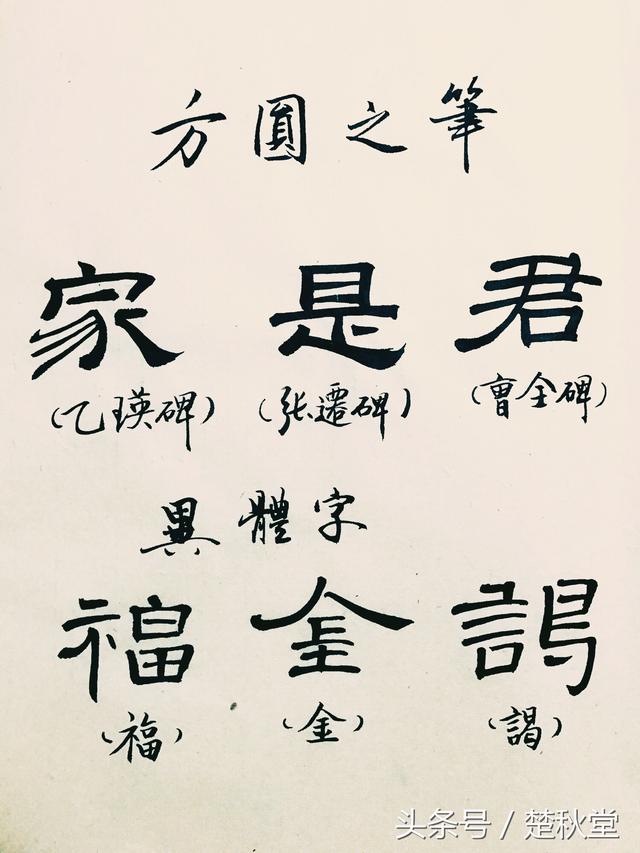 方圓之筆
家 是 君
(乙瑛碑) (张遷碑) (曹全碑)
異體字
福 金 謁
(福) (金) (謁)
头条号 / 楚秋堂